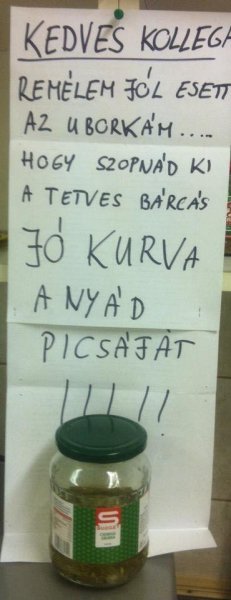 KEDVES KOLLEGA
REMÉLEM JÓL ESETT
AZ UBORKÁM.....
HOGY SZOPNÁD KI
A TETVES BÁRCÁS
JÓ KURVA
ANYÁD
PICSÁJÁT
!!!!!
S